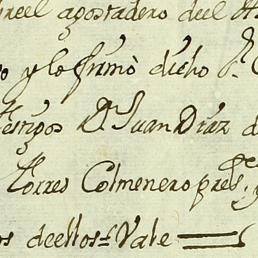 apostadero del
y lo firmò dicho Sr.
testigos D. Juan Diaz d
Torres Colmenero pres.
os deellos = Vale